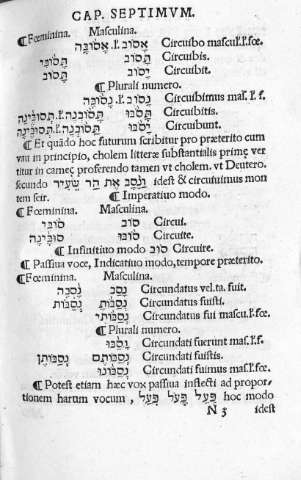 CAP. SEPTIMVM.
¶Fœminina. Masculina.
אָסוֹב .ſ. אֶסוֹבָּה Circuibo maſcu.ſ.fœ.
תָּסוֹבִּי תָּסוֹב Circuibis.
תָּסוֹב יָסוֹב Circuibit.
¶Plurali numero.
נָסוֹב .ſ. נָסוֹבָּה Circuibimus maſ.ſ.f.
תָּסוֹבּוּ Circuibitis.
יָסוֹבּוּ Circuibunt.
¶Et quãdo hoc futurum ſcribitur pro præterito cum
vau in principio, cholem litteræ ſubſtantialis primę ver
titur in cameç proferendo tamen vt cholem. vt Deutero.
ſecundo וַנָּסָב אֶת הַר שֵׂעִיר idest & circuiuimus mon
tem ſeir. ¶Imperatiuo modo.
¶Fœminina. Masculina.
סוֹבִּי סוֹב Circui.
סוֹבּוּ Circuite.
¶Infinitiuo modo סוֹב Circuire.
¶Paſſiua voce, Indicatiuo modo, tempore præterito.
¶Fœminina. Masculina.
נָסַבָּה נָסַב Circundatus vel.ta.fuit.
נָסַבּוֹת נָסַבּוֹתָ Circundatus fuiſti.
נָסַבּוֹתִי Circundatus fui maſcu.ſ.fœ.
¶Plurali numero.
נָסַבּוּ Circundati fuerunt maſ.ſ.f.
נָסַבּוֹתֶן נָסַבּוֹתֶם Circundati fuiſtis.
נָסַבּוֹנוּ Circundati fuimus maſ.ſ.fœ.
¶Poteſt etiam hæc vox paſſiua inflecti ad propor-
tionem harum vocum, hoc modo
N 3 ideſt